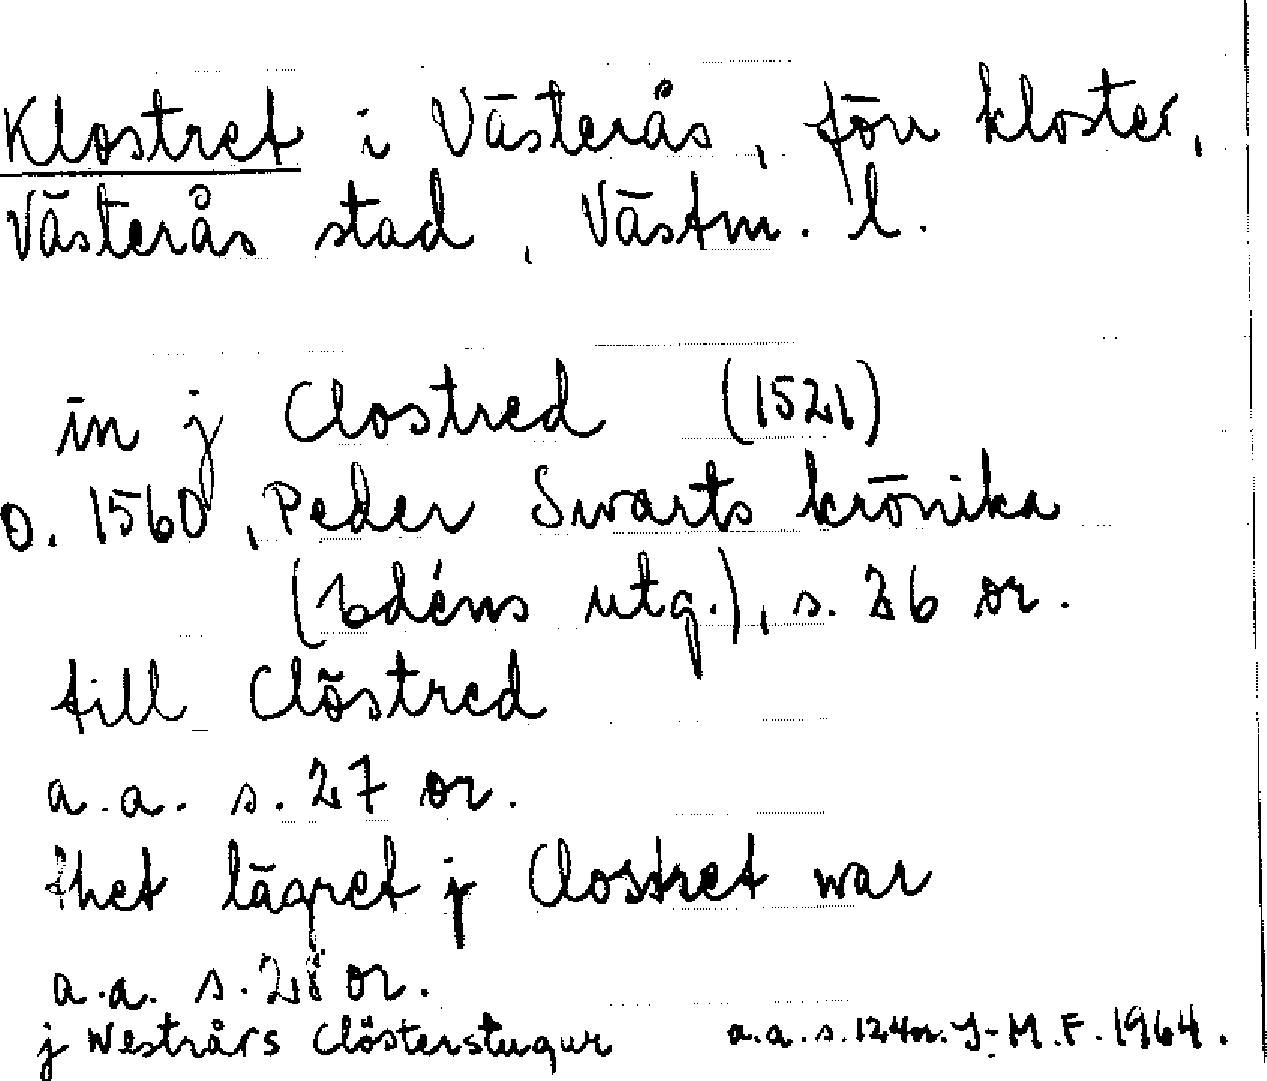 Klostret i Västerås, förr kloster,
Västerås stad, Västm. l.
in j Clostred (1521)
o. 1560, Peder Swarts krönika
(Edéns utg.), s. 26 or.
till Clöstred
a.a. s. 27 or.
thet lägret j Clostret war
a.a. s. 28 or.
j Westrårs Clösterstugur a.a. s. 124 or. I-M.F. 1964.